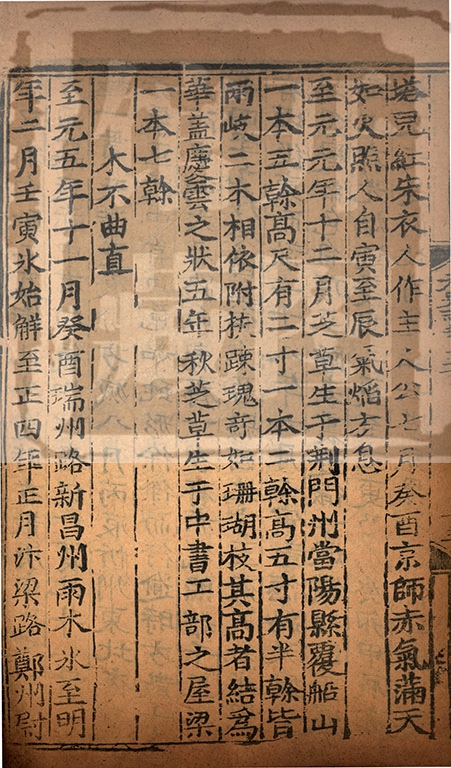 塔兒紅朱衣人作主人公七月癸酉京師赤氣滿天
如火照人自寅至辰氣焰方息
至元元年十二月芝草生于荆門州當陽縣覆船山
一本五幹高尺有二寸一本二幹高五寸有半幹皆
兩岐二本相依附扶踈瑰竒如珊瑚枝其高者結爲
華盖慶雲之狀五年秋芝草生于中書工部之屋梁
一本七幹
木不曲直
至元五年十一月癸酉瑞州路新昌州雨木氷至明
年二月壬寅氷始解至正四年正月汴梁路鄭州尉